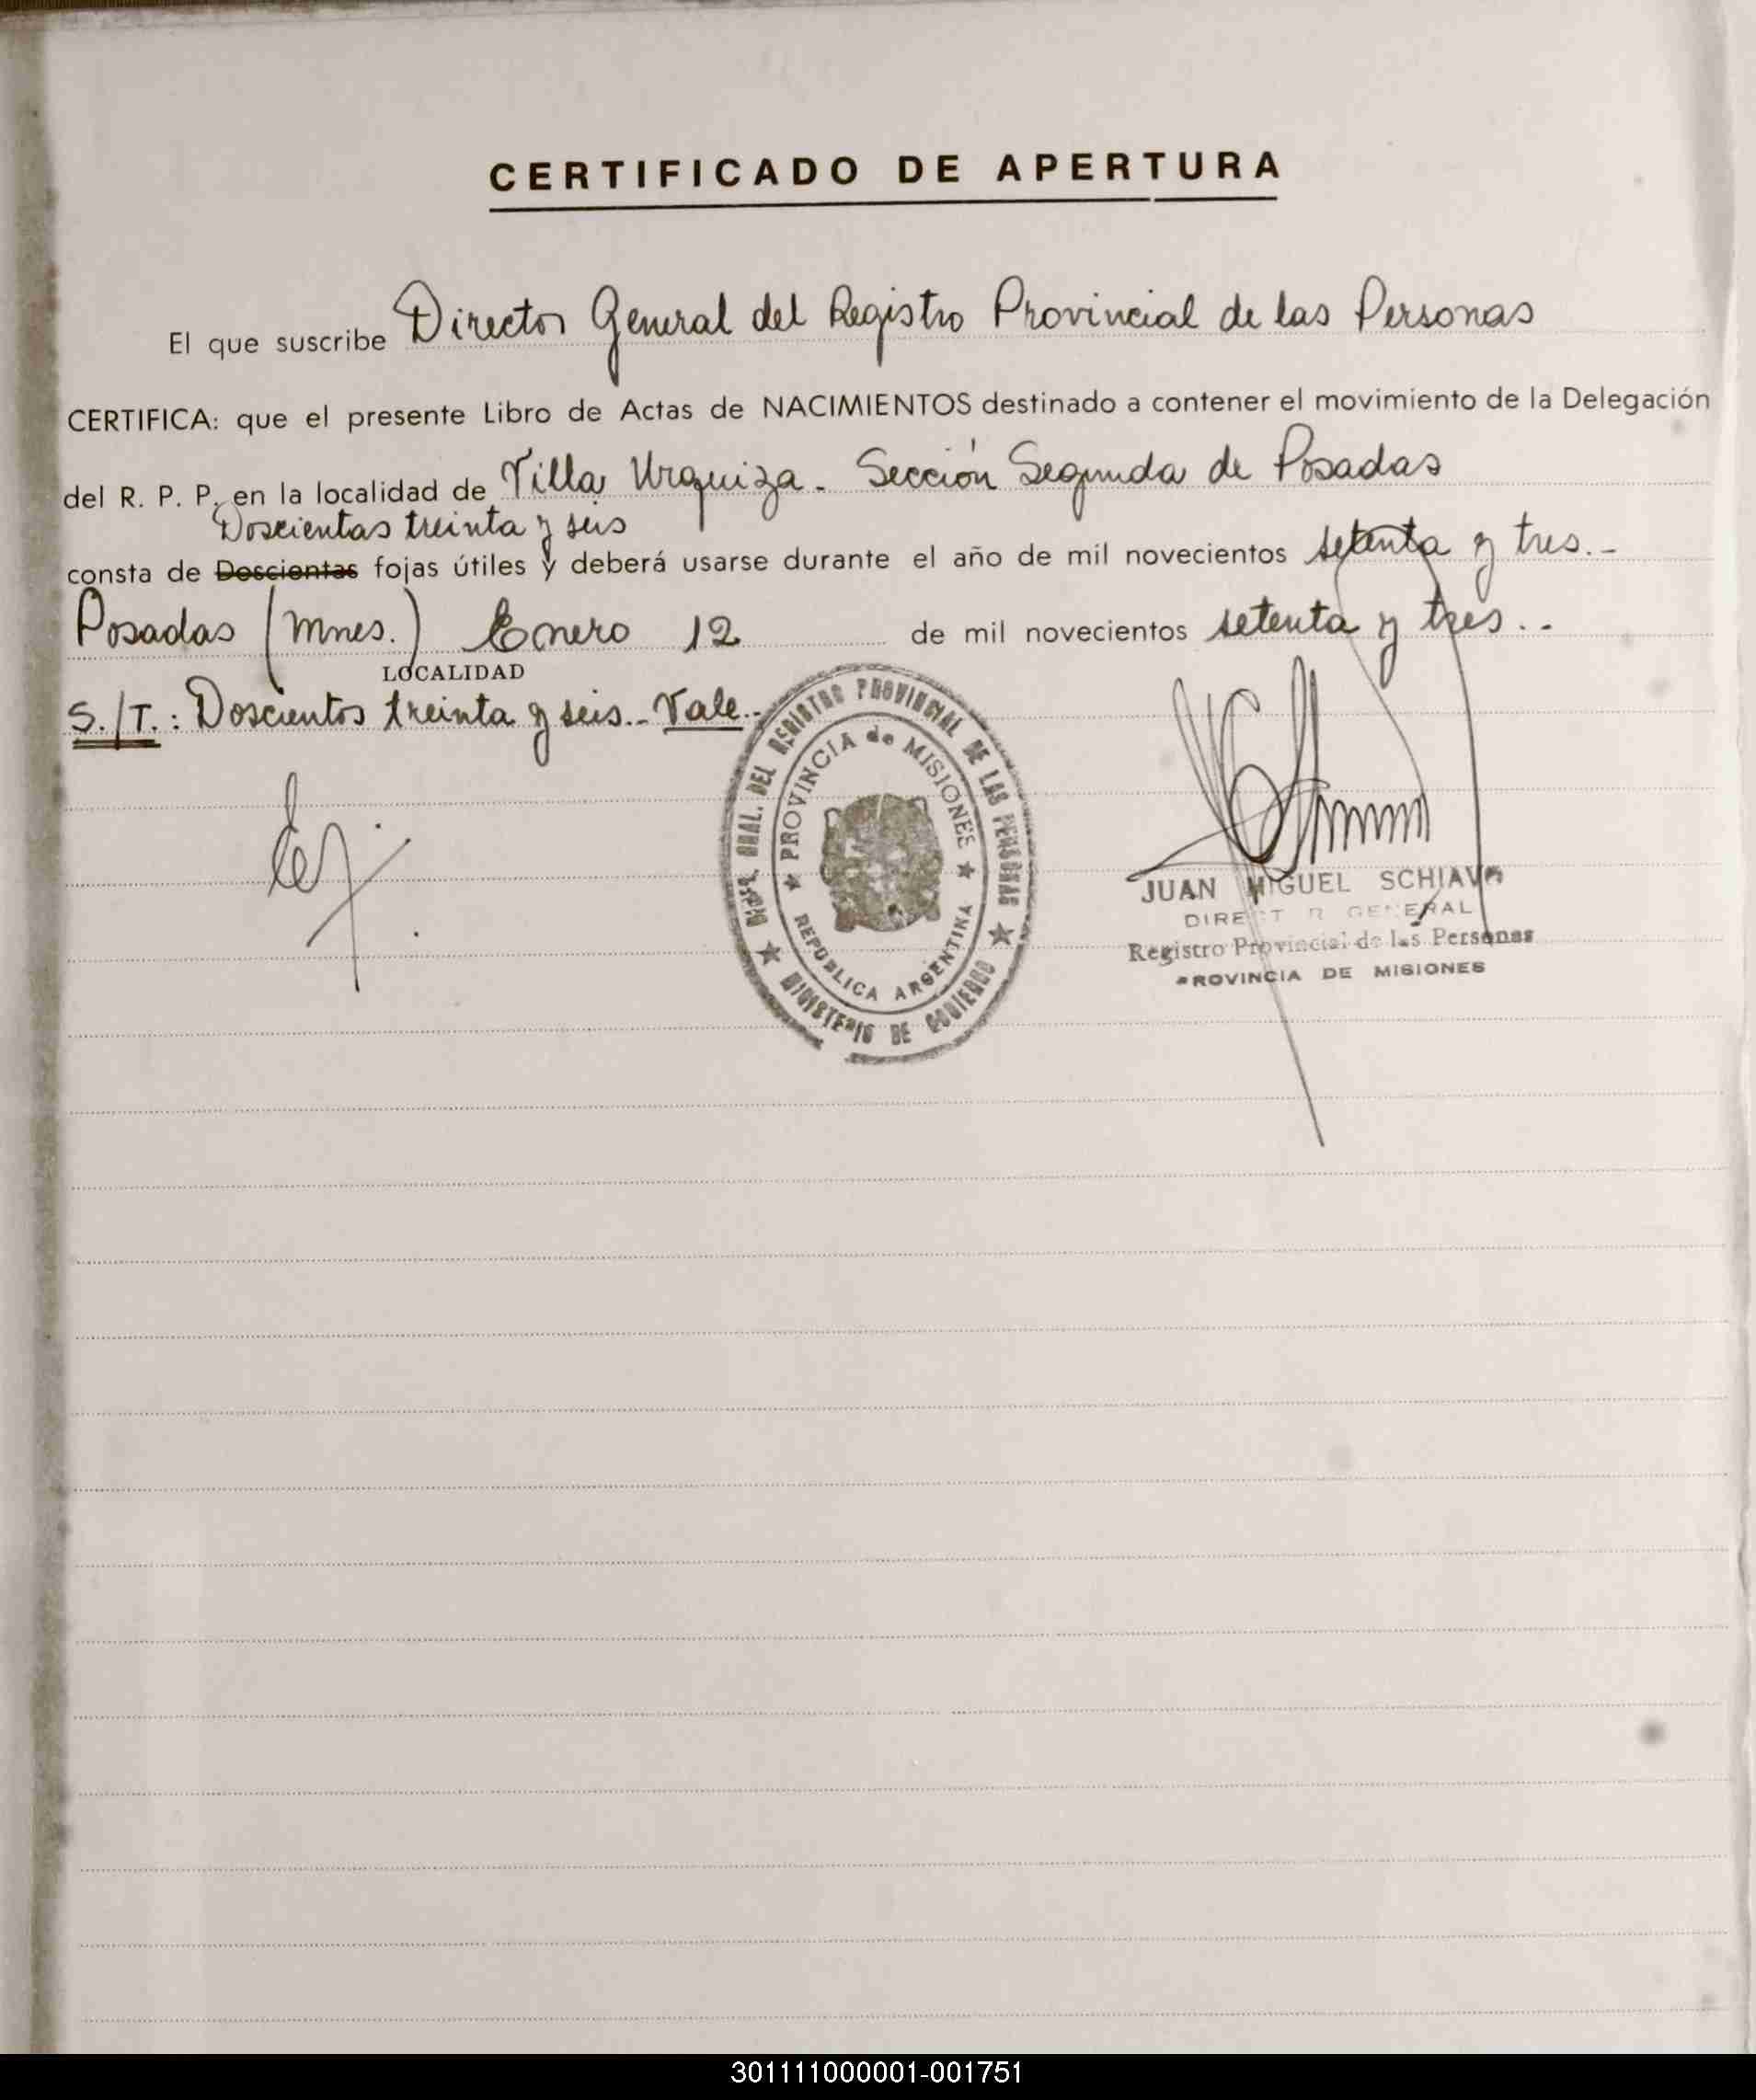 CERTIFICADO DE APERTURA
El que suscribe Director General del Registro Provincial de las Personas
CERTIFICA: que el presente Libro de Actas de NACIMIENTOS destinado a contener el movimiento de la Delegación
del R. P. P. en la localidad de Villa Urquiza. Sección Segunda de Posadas
Doscientas treinta y seis
consta de Doscientas fojas útiles y deberá usarse durante el año de mil novecientos setenta y tres.-
Posadas (Mnes.) Enero 12 de mil novecientos setenta y tres..-
LOCALIDAD
S./T.: Doscientos treinta y seis.- Vale.-
DIRE. GRAL. DEL REGISTRO PROVINCIAL DE LAS PERSONAS
★ MINISTERIO DE GOBIERNO ★
★ PROVINCIA de MISIONES ★
REPUBLICA ARGENTINA
JUAN MIGUEL SCHIAVO
DIRECT R GENERAL
Registro Provincial de las Personas
PROVINCIA DE MISIONES
301111000001-001751